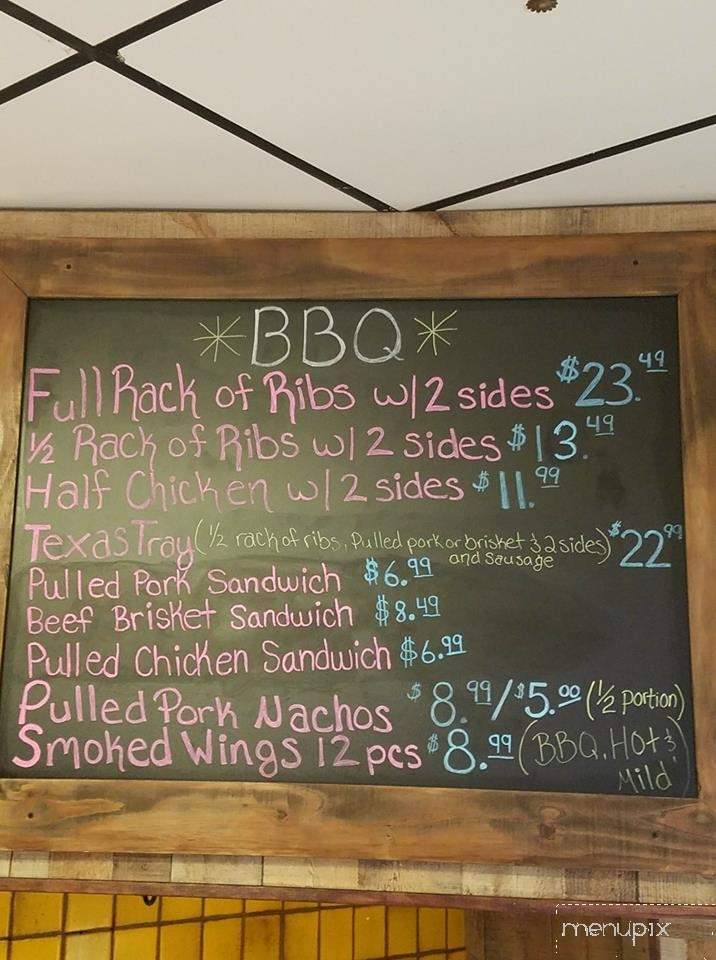 BBQ
Full Rack of Ribs w/2 sides $23.49
1/2 Rack of Ribs w/ 2 sides $13.49
Half Chicken w/2 sides $11.99
Texas Tray (1/2 rack of ribs, Pulled pork or brisket & 2 sides) $22.99
and Sausage
Pulled Pork Sandwich $6.99
Beef Brisket Sandwich $8.49
Pulled Chicken Sandwich $6.99
Pulled Pork Nachos $8.99/$5.00 (1/2 portion)
Smoked Wings 12 pcs $8.99 (BBQ, Hot &
Mild)
menupix